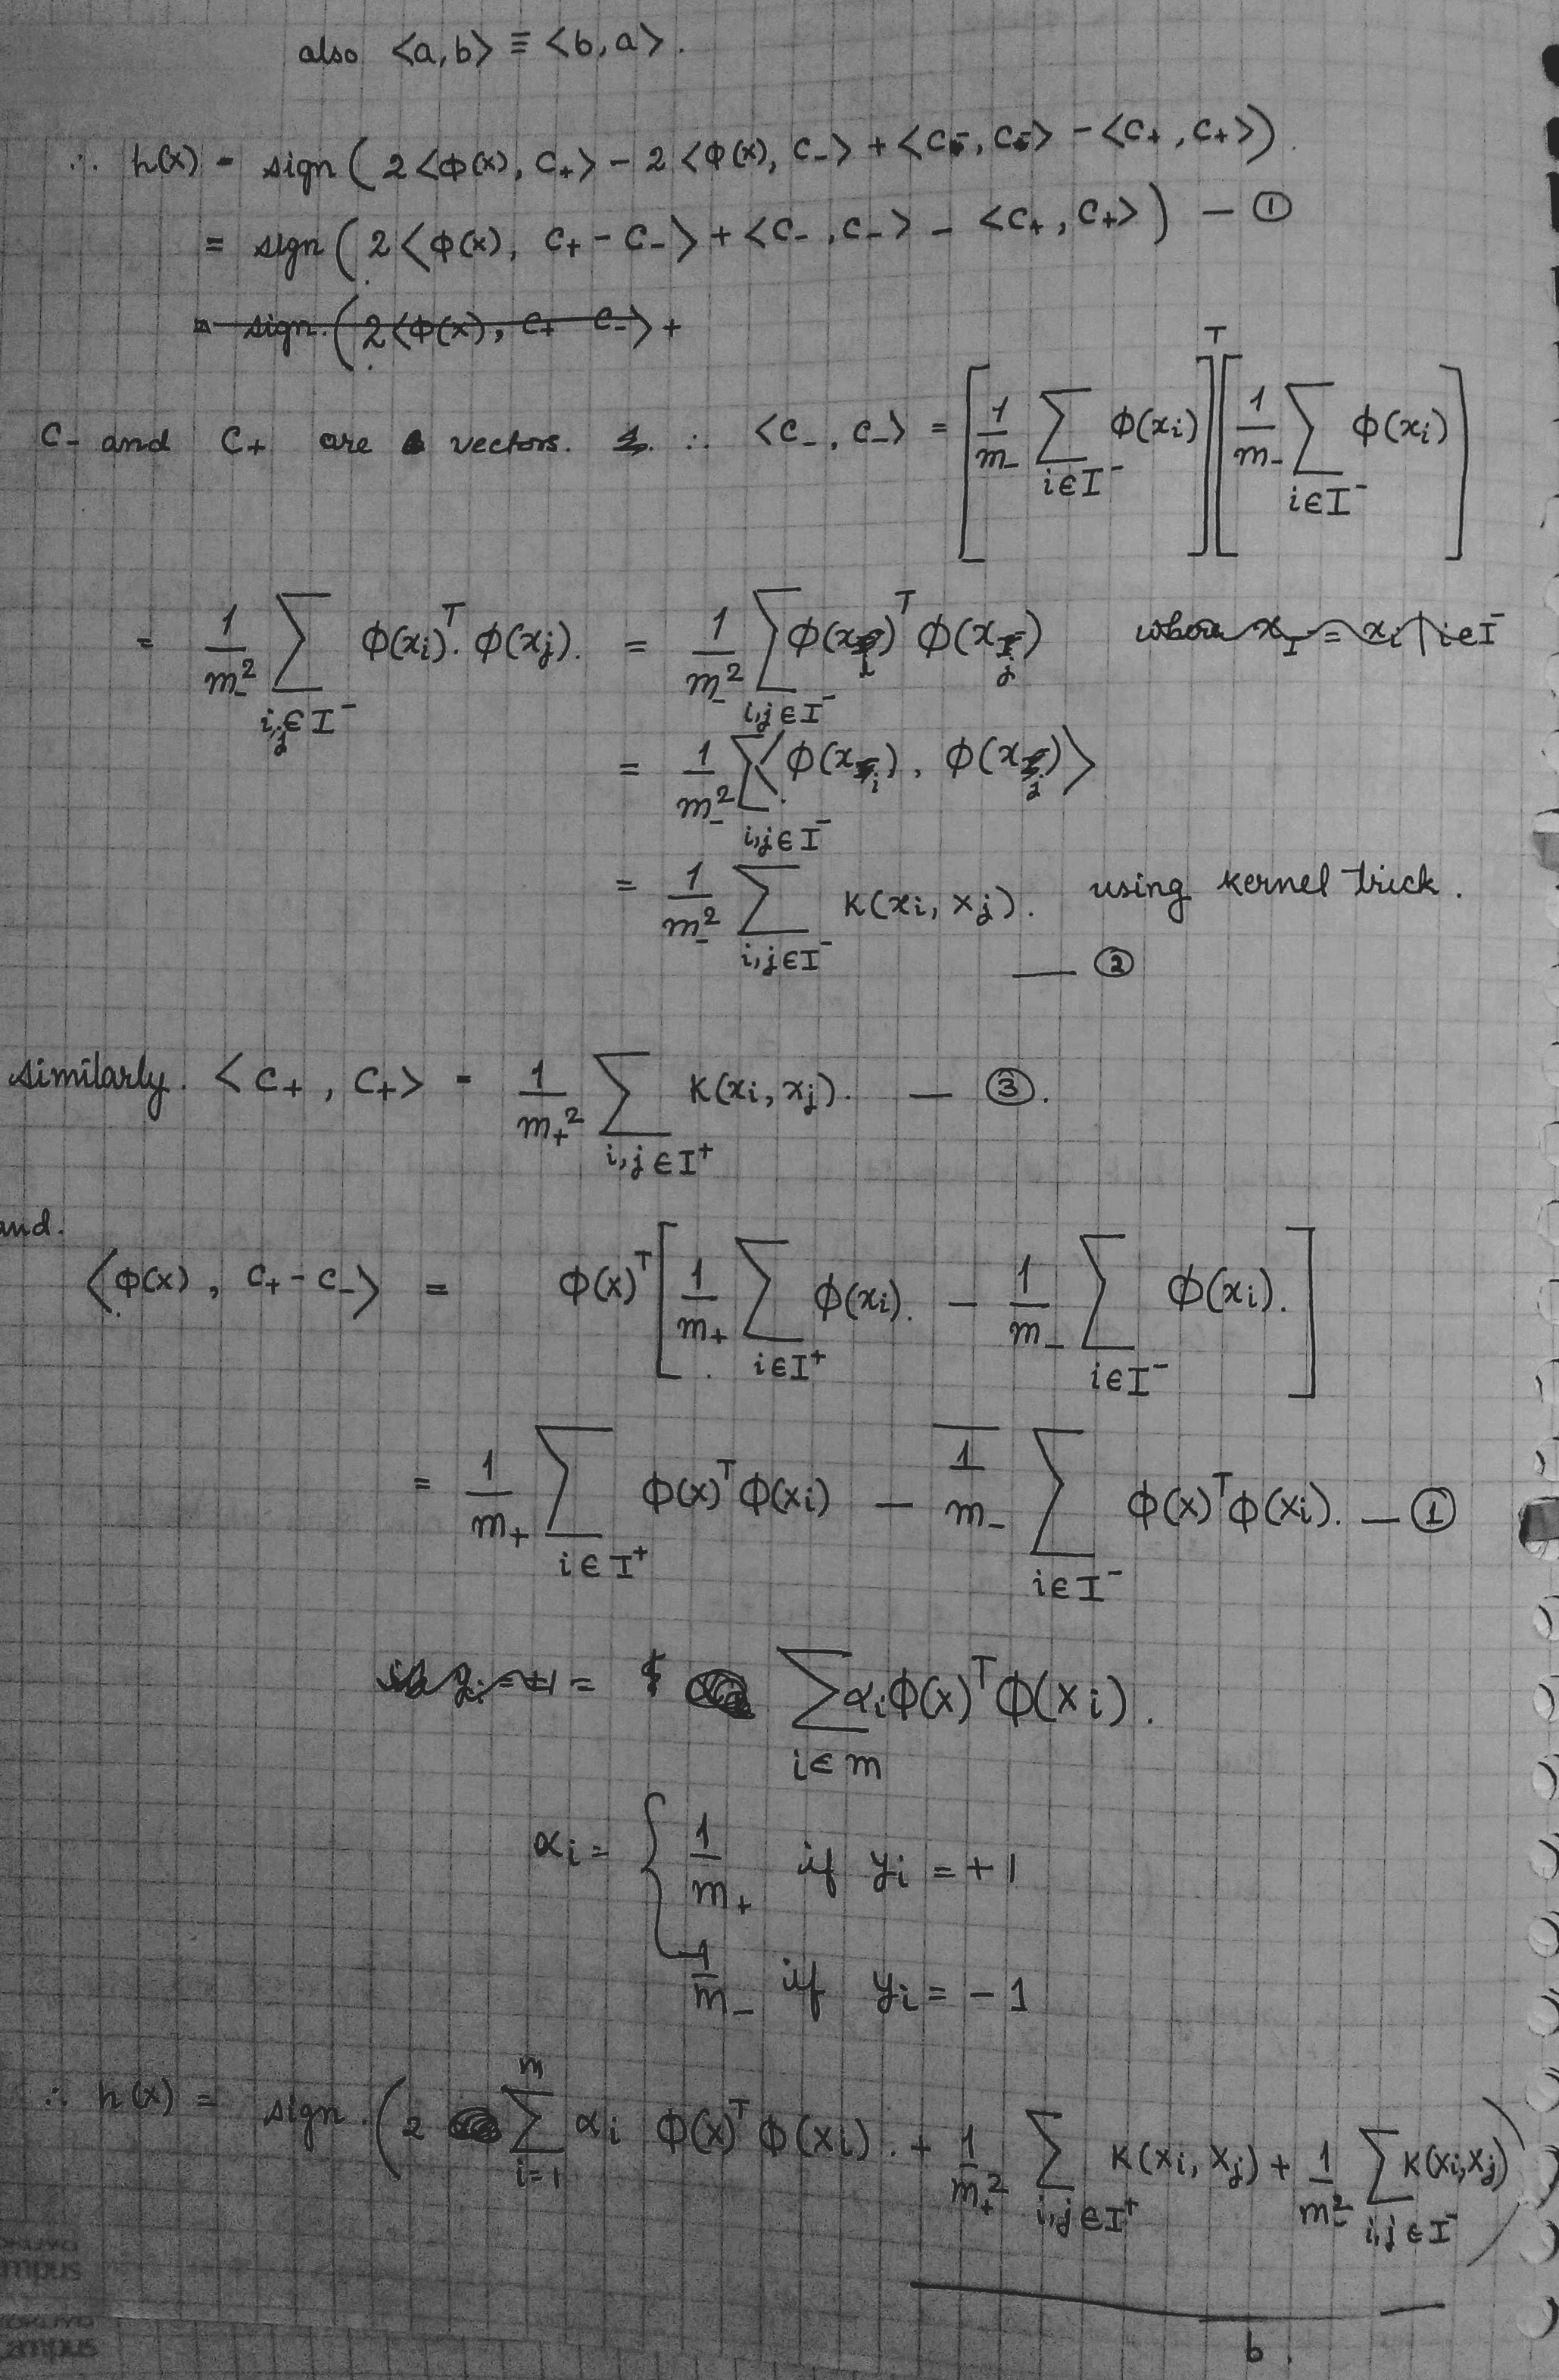 also <a,b> ≡ <b,a>.
∴ h(x) = sign ( 2<Φ(x), C₊> - 2 <Φ(x), C₋> + <C₋, C₋> - <C₊, C₊> )
= sign ( 2 <Φ(x), C₊ - C₋> + <C₋, C₋> - <C₊, C₊> ) — ①
= sign. ( 2<Φ(x), C₊ C₋> +
C₋ and C₊ are vectors. ∴ <C₋, C₋> = [ 1/m₋ ∑_{i∈I⁻} Φ(xi) ]ᵀ [ 1/m₋ ∑_{i∈I⁻} Φ(xi) ]
= 1/m₋² ∑_{i,j∈I⁻} Φ(xi)ᵀ. Φ(xj). = 1/m₋² ∑_{i,j∈I⁻} Φ(xi)ᵀ Φ(xj) where x_I = xi | i∈I⁻
= 1/m₋² ∑_{i,j∈I⁻} <Φ(xi), Φ(xj)>
= 1/m₋² ∑_{i,j∈I⁻} K(xi, xj). using kernel trick.
— ②
similarly. <C₊, C₊> = 1/m₊² ∑_{i,j∈I⁺} K(xi, xj). — ③.
and.
<Φ(x), C₊ - C₋> = Φ(x)ᵀ [ 1/m₊ ∑_{i∈I⁺} Φ(xi). - 1/m₋ ∑_{i∈I⁻} Φ(xi). ]
= 1/m₊ ∑_{i∈I⁺} Φ(x)ᵀΦ(xi) - 1/m₋ ∑_{i∈I⁻} Φ(x)ᵀΦ(xi). — ①
= ∑_{i∈m} αiΦ(x)ᵀΦ(xi).
αi = { 1/m₊ if yi = +1
1/m₋ if yi = -1
∴ h(x) = sign. ( 2 ∑_{i=1}^{m} αi Φ(x)ᵀΦ(xi). + 1/m₊² ∑_{i,j∈I⁺} K(xi, xj) + 1/m₋² ∑_{i,j∈I⁻} K(xi,xj) )
b.